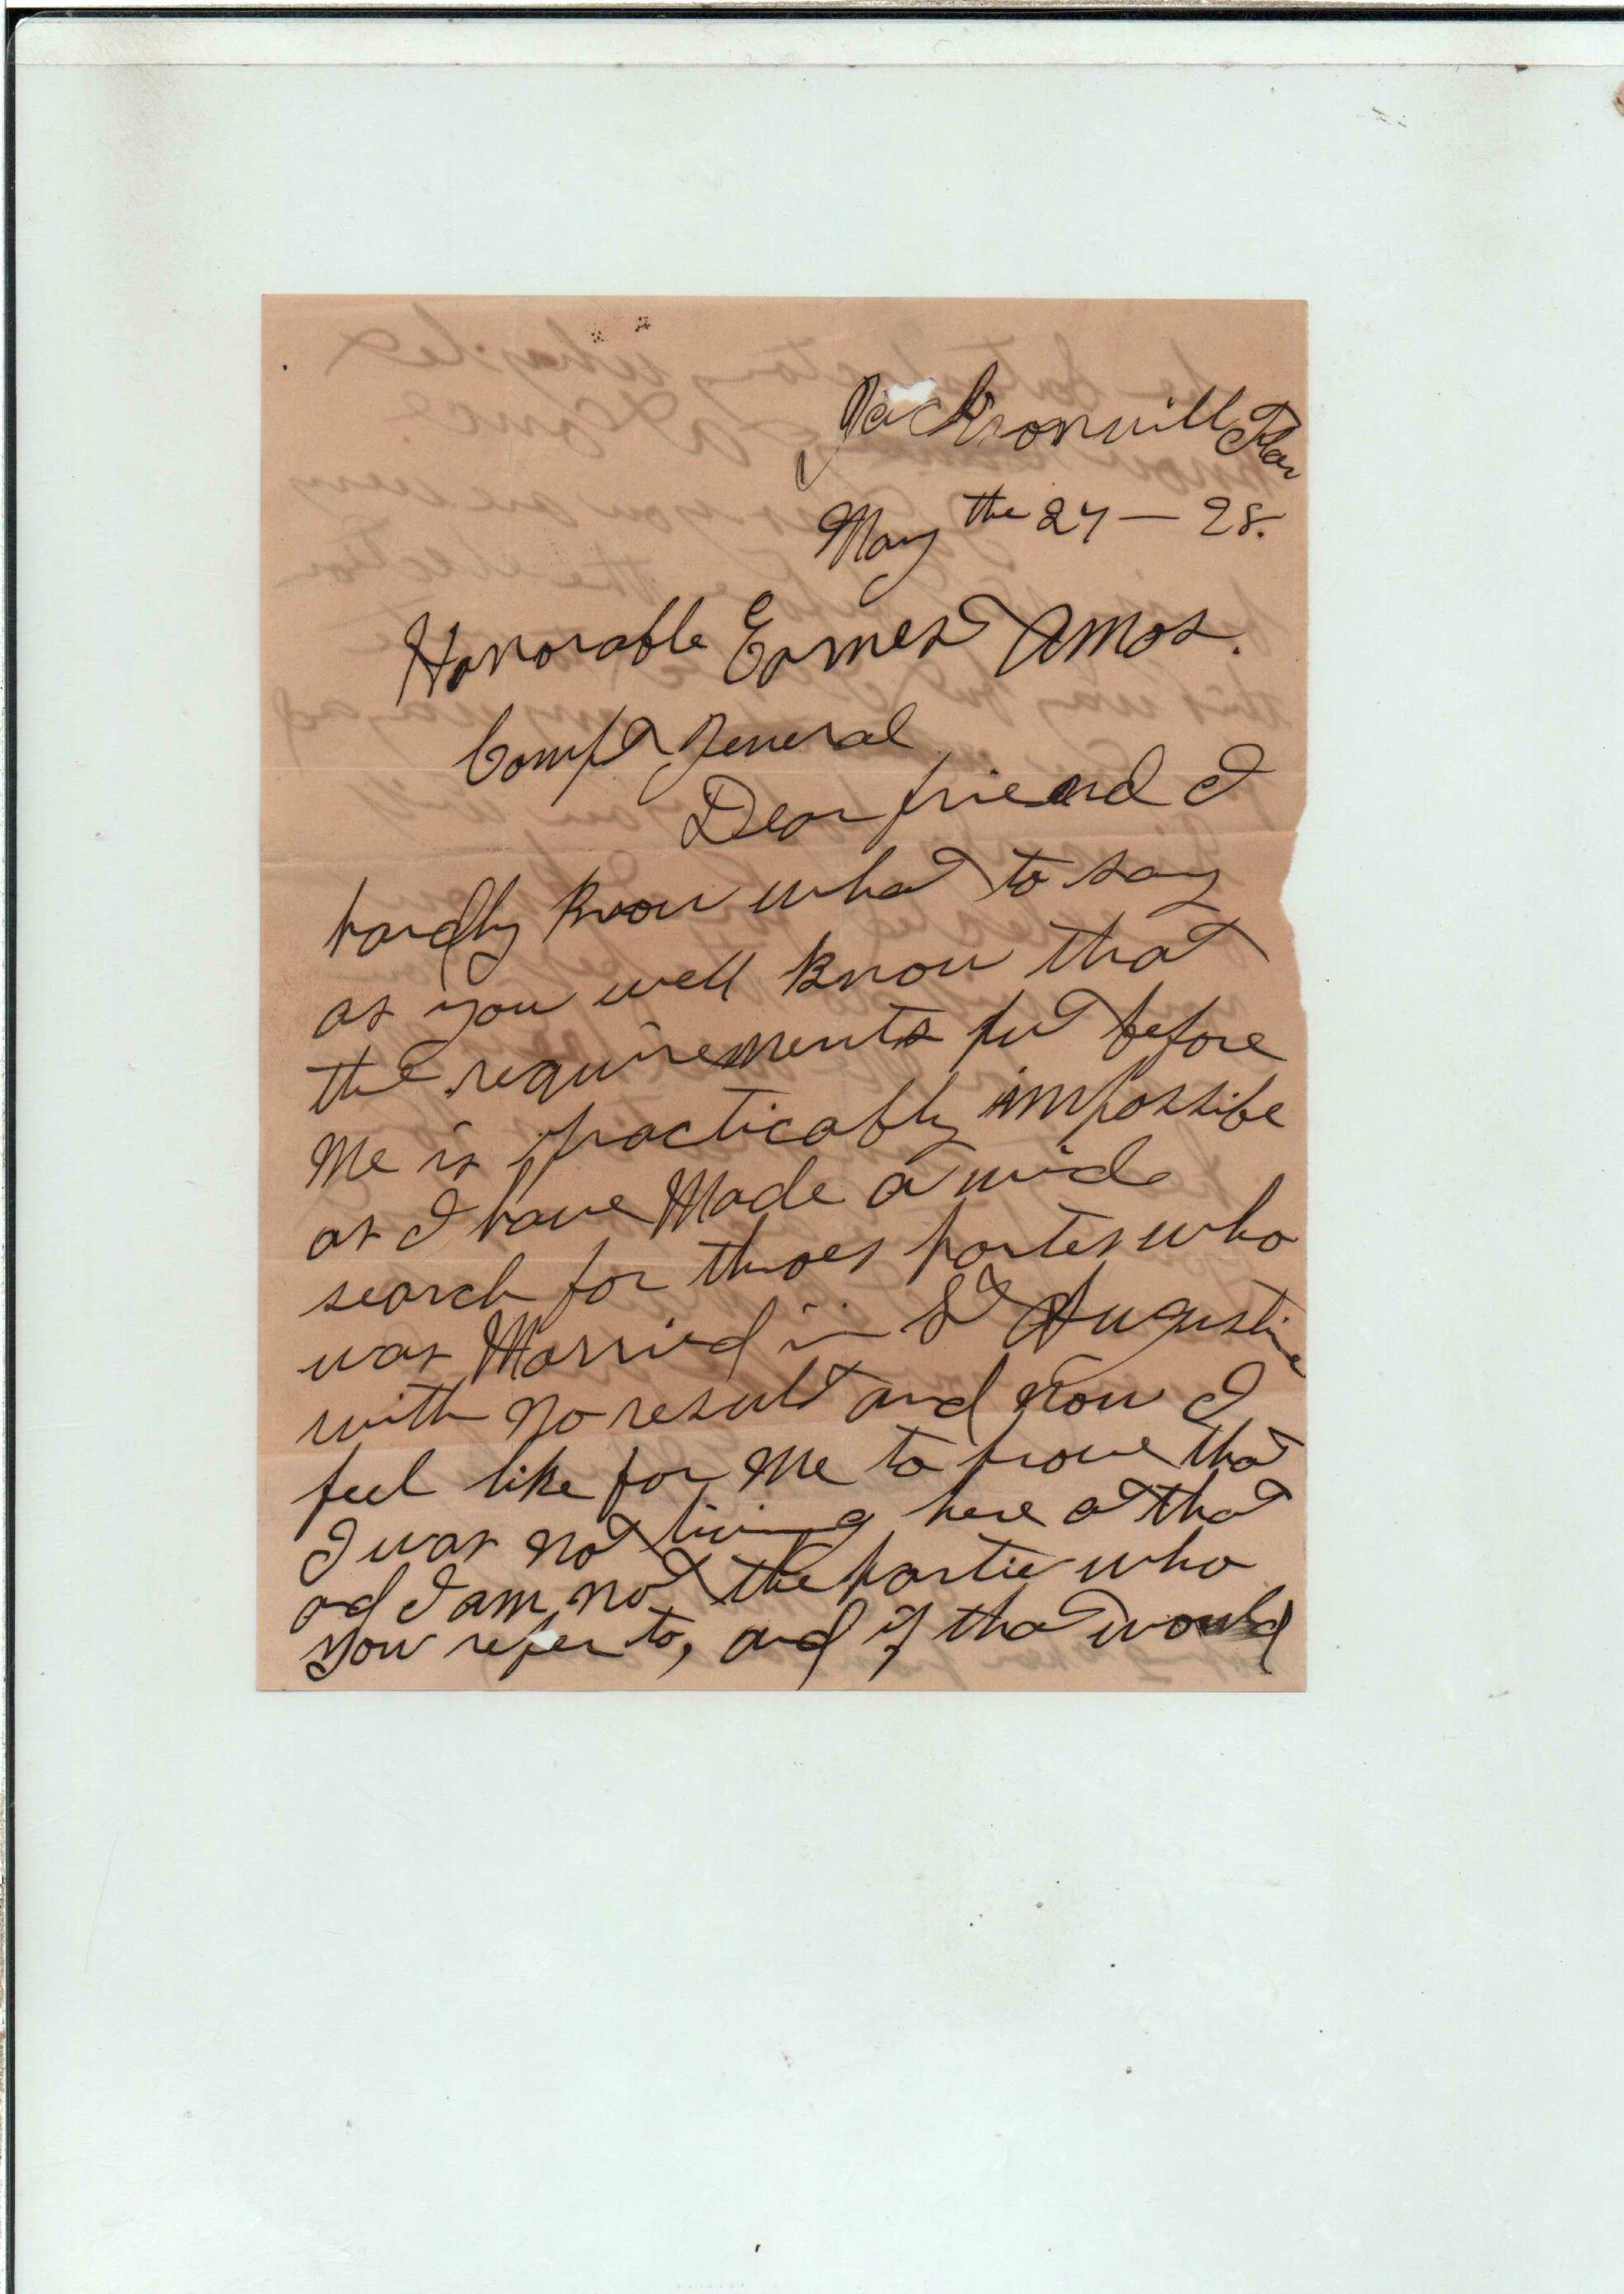 Jacksonvill Fla
May the 27 — 28.
Honorable Ernest Amos.
Compt General
Dear friend I
hardly know what to say
as you well know that
the requirements put before
me is practicably impossible
as I have made a wide
search for thoes partes who
was married in St Augustine
with no result and now I
feel like for me to prove that
I was not living here at that
ad I am not the partie who
you refer to, and if that would